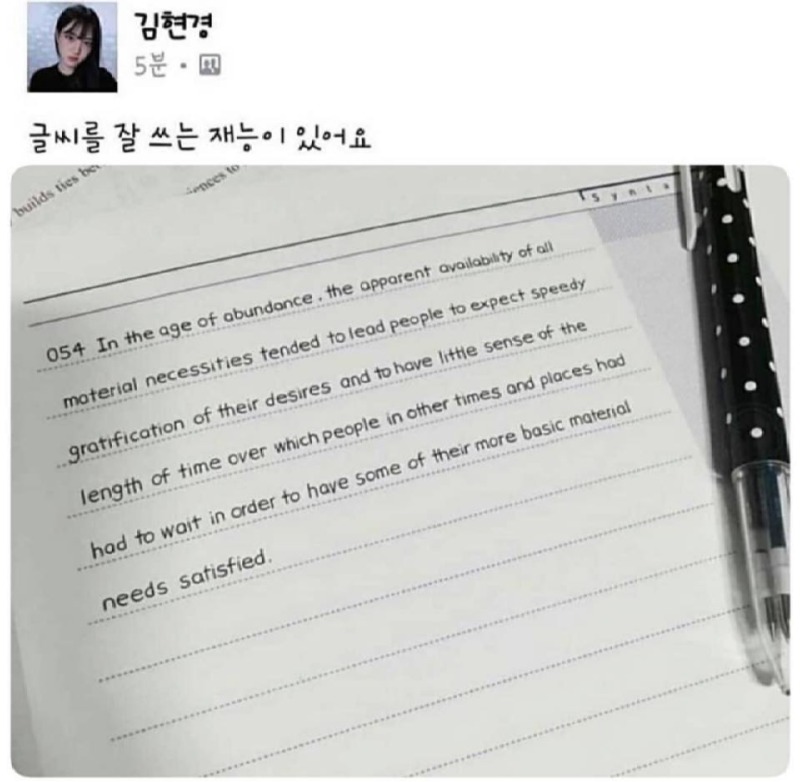 김현경
5분
글씨를 잘 쓰는 재능이 있어요
builds ties
iences to
Synta
054 In the age of abundance, the apparent availability of all
material necessities tended to lead people to expect speedy
gratification of their desires and to have little sense of the
length of time over which people in other times and places had
had to wait in order to have some of their more basic material
needs satisfied.